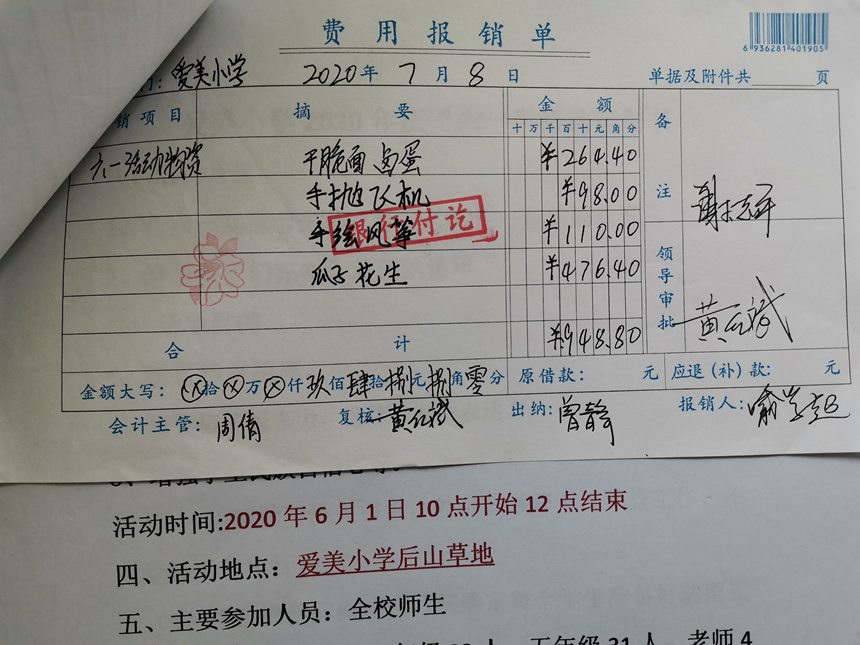 费用报销单
6 936281 401905
门：爱美小学 2020年7月8日 单据及附件共 页
销项目 摘要 金额 备注
十万千百十元角分
六一活动物资 干脆面 卤蛋 ¥264.40
手抛飞机 ¥98.00
手绘风筝 ¥110.00
银行付讫
瓜子花生 ¥476.40
领导审批
合计 ¥948.80
金额大写：ⓧ拾ⓧ万ⓧ仟玖佰肆拾捌元捌角零分 原借款： 元 应退（补）款： 元
会计主管：周倩 复核：黄红斌 出纳：曾静 报销人：喻
活动时间:2020年6月1日10点开始12点结束
四、活动地点：爱美小学后山草地
五、主要参加人员：全校师生
五年级31人 老师4